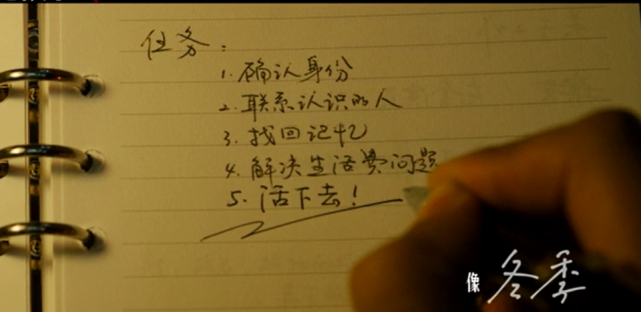 任务：
1. 确认身份
2. 联系认识的人
3. 找回记忆
4. 解决生活费问题
5. 活下去！
像 冬季